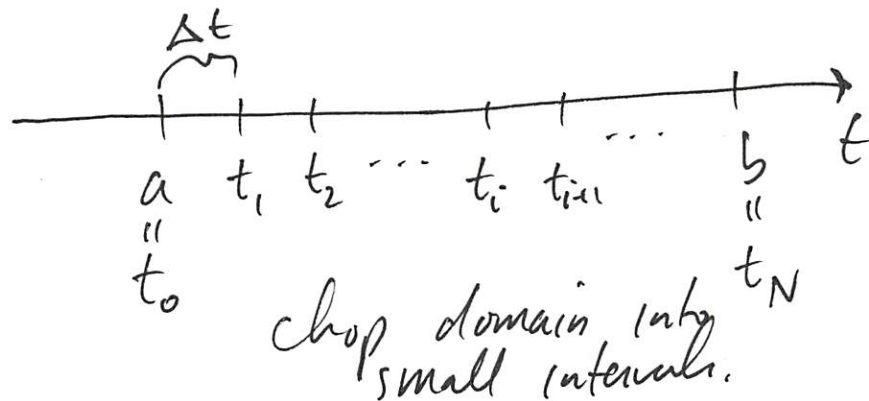 Δt
a t₁ t₂ ... tᵢ tᵢ₊₁ ... b t
" "
t₀ t_N
chop domain into
small intervals.